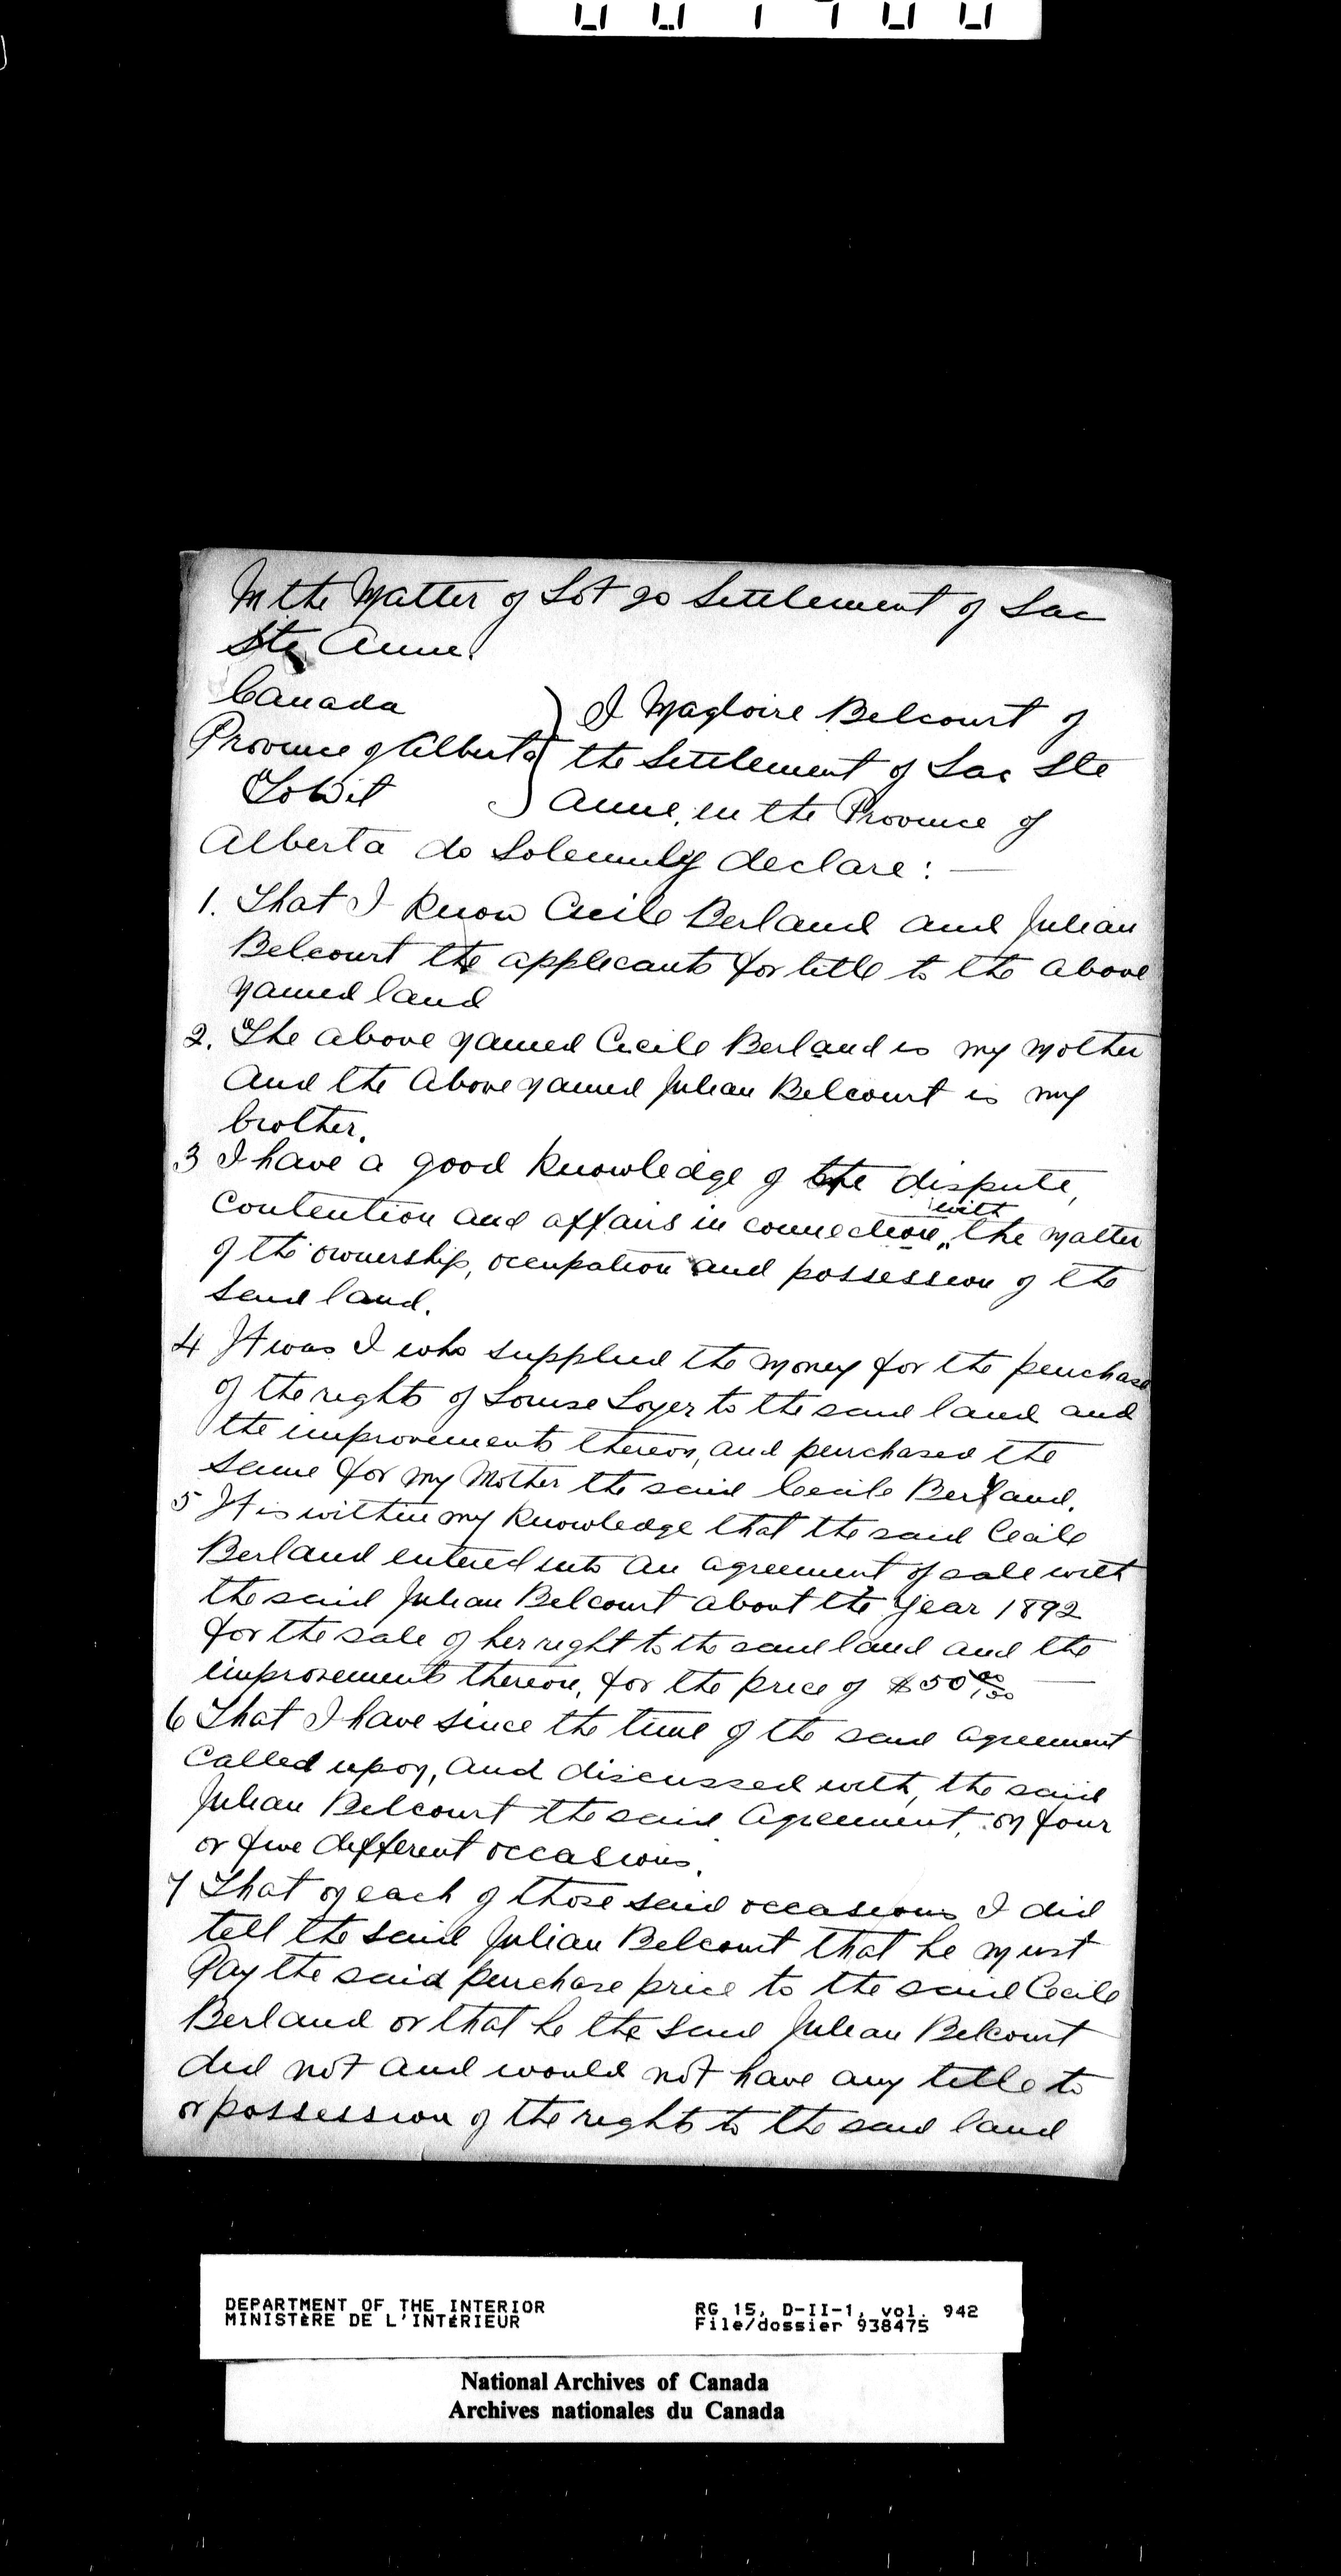 In the Matter of Lot 20 Settlement of Lac
Ste Anne.
Canada
Province of Alberta
To Wit
I Magloire Belcourt of
the Settlement of Lac Ste
Anne, in the Province of
Alberta do Solemnly declare: —
1. That I know Cecile Berland and Julian
Belcourt the applicants for title to the above
named land
2. The above named Cecile Berland is my mother
and the above named Julian Belcourt is my
brother.
3 I have a good knowledge of the dispute,
contention and affairs in connection with the matter
of the ownership, occupation and possession of the
said land.
4 It was I who supplied the money for the purchase
of the rights of Louise Loyer to the said land and
the improvements thereon, and purchased the
same for my Mother the said Cecile Berland.
5 It is within my knowledge that the said Cecile
Berland entered into an agreement of sale with
the said Julian Belcourt about the year 1892
for the sale of her right to the said land and the
improvements thereon, for the price of $50 00/100 —
6 That I have since the time of the said agreement
called upon, and discussed with, the said
Julian Belcourt the said Agreement, on four
or five different occasions.
7 That on each of those said occasions I did
tell the said Julian Belcourt that he must
Pay the said purchase price to the said Cecile
Berland or that he the said Julian Belcourt
did not and would not have any title to
or possession of the rights to the said land
DEPARTMENT OF THE INTERIOR
MINISTÈRE DE L'INTÉRIEUR
RG 15, D-II-1, vol. 942
File/dossier 938475
National Archives of Canada
Archives nationales du Canada